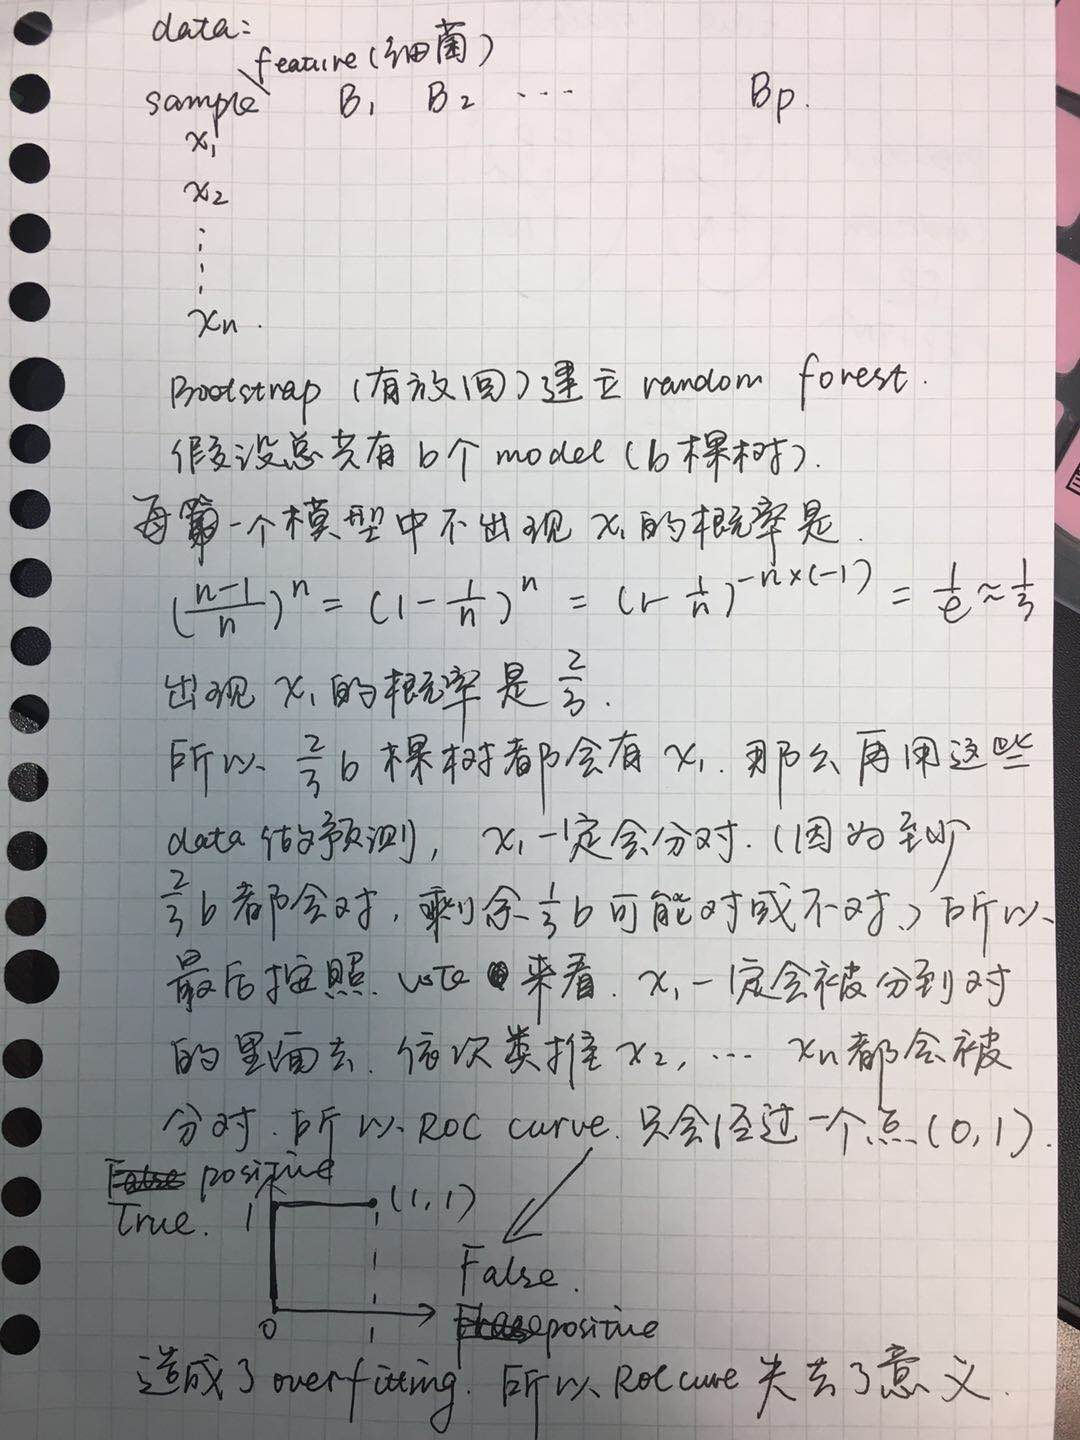 data:
feature(细菌)
sample B₁ B₂ ... Bp.
x₁
x₂
⋮
xn.
Bootstrap (有放回) 建立 random forest.
假设总共有 b个 model (b棵树).
每一个模型中不出现 x₁的概率是
(n-1/n)ⁿ = (1-1/n)ⁿ = (1-1/n)^(-n×(-1)) = 1/e ≈ 1/3
出现 x₁的概率是 2/3.
所以 2/3 b 棵树都会有 x₁. 那么再用这些
data 做预测, x₁一定会分对. (因为至少
2/3 b 都会对, 剩余 1/3 b 可能对或不对,) 所以
最后按照 vote 来看. x₁一定会被分到对
的里面去. 依次类推 x₂, ... xn都会被
分对. 所以 ROC curve. 只会经过一个点 (0,1).
False positive
True. 1 (1,1)
False.
0 1 positive
造成了overfitting. 所以 ROC cuve 失去了意义.